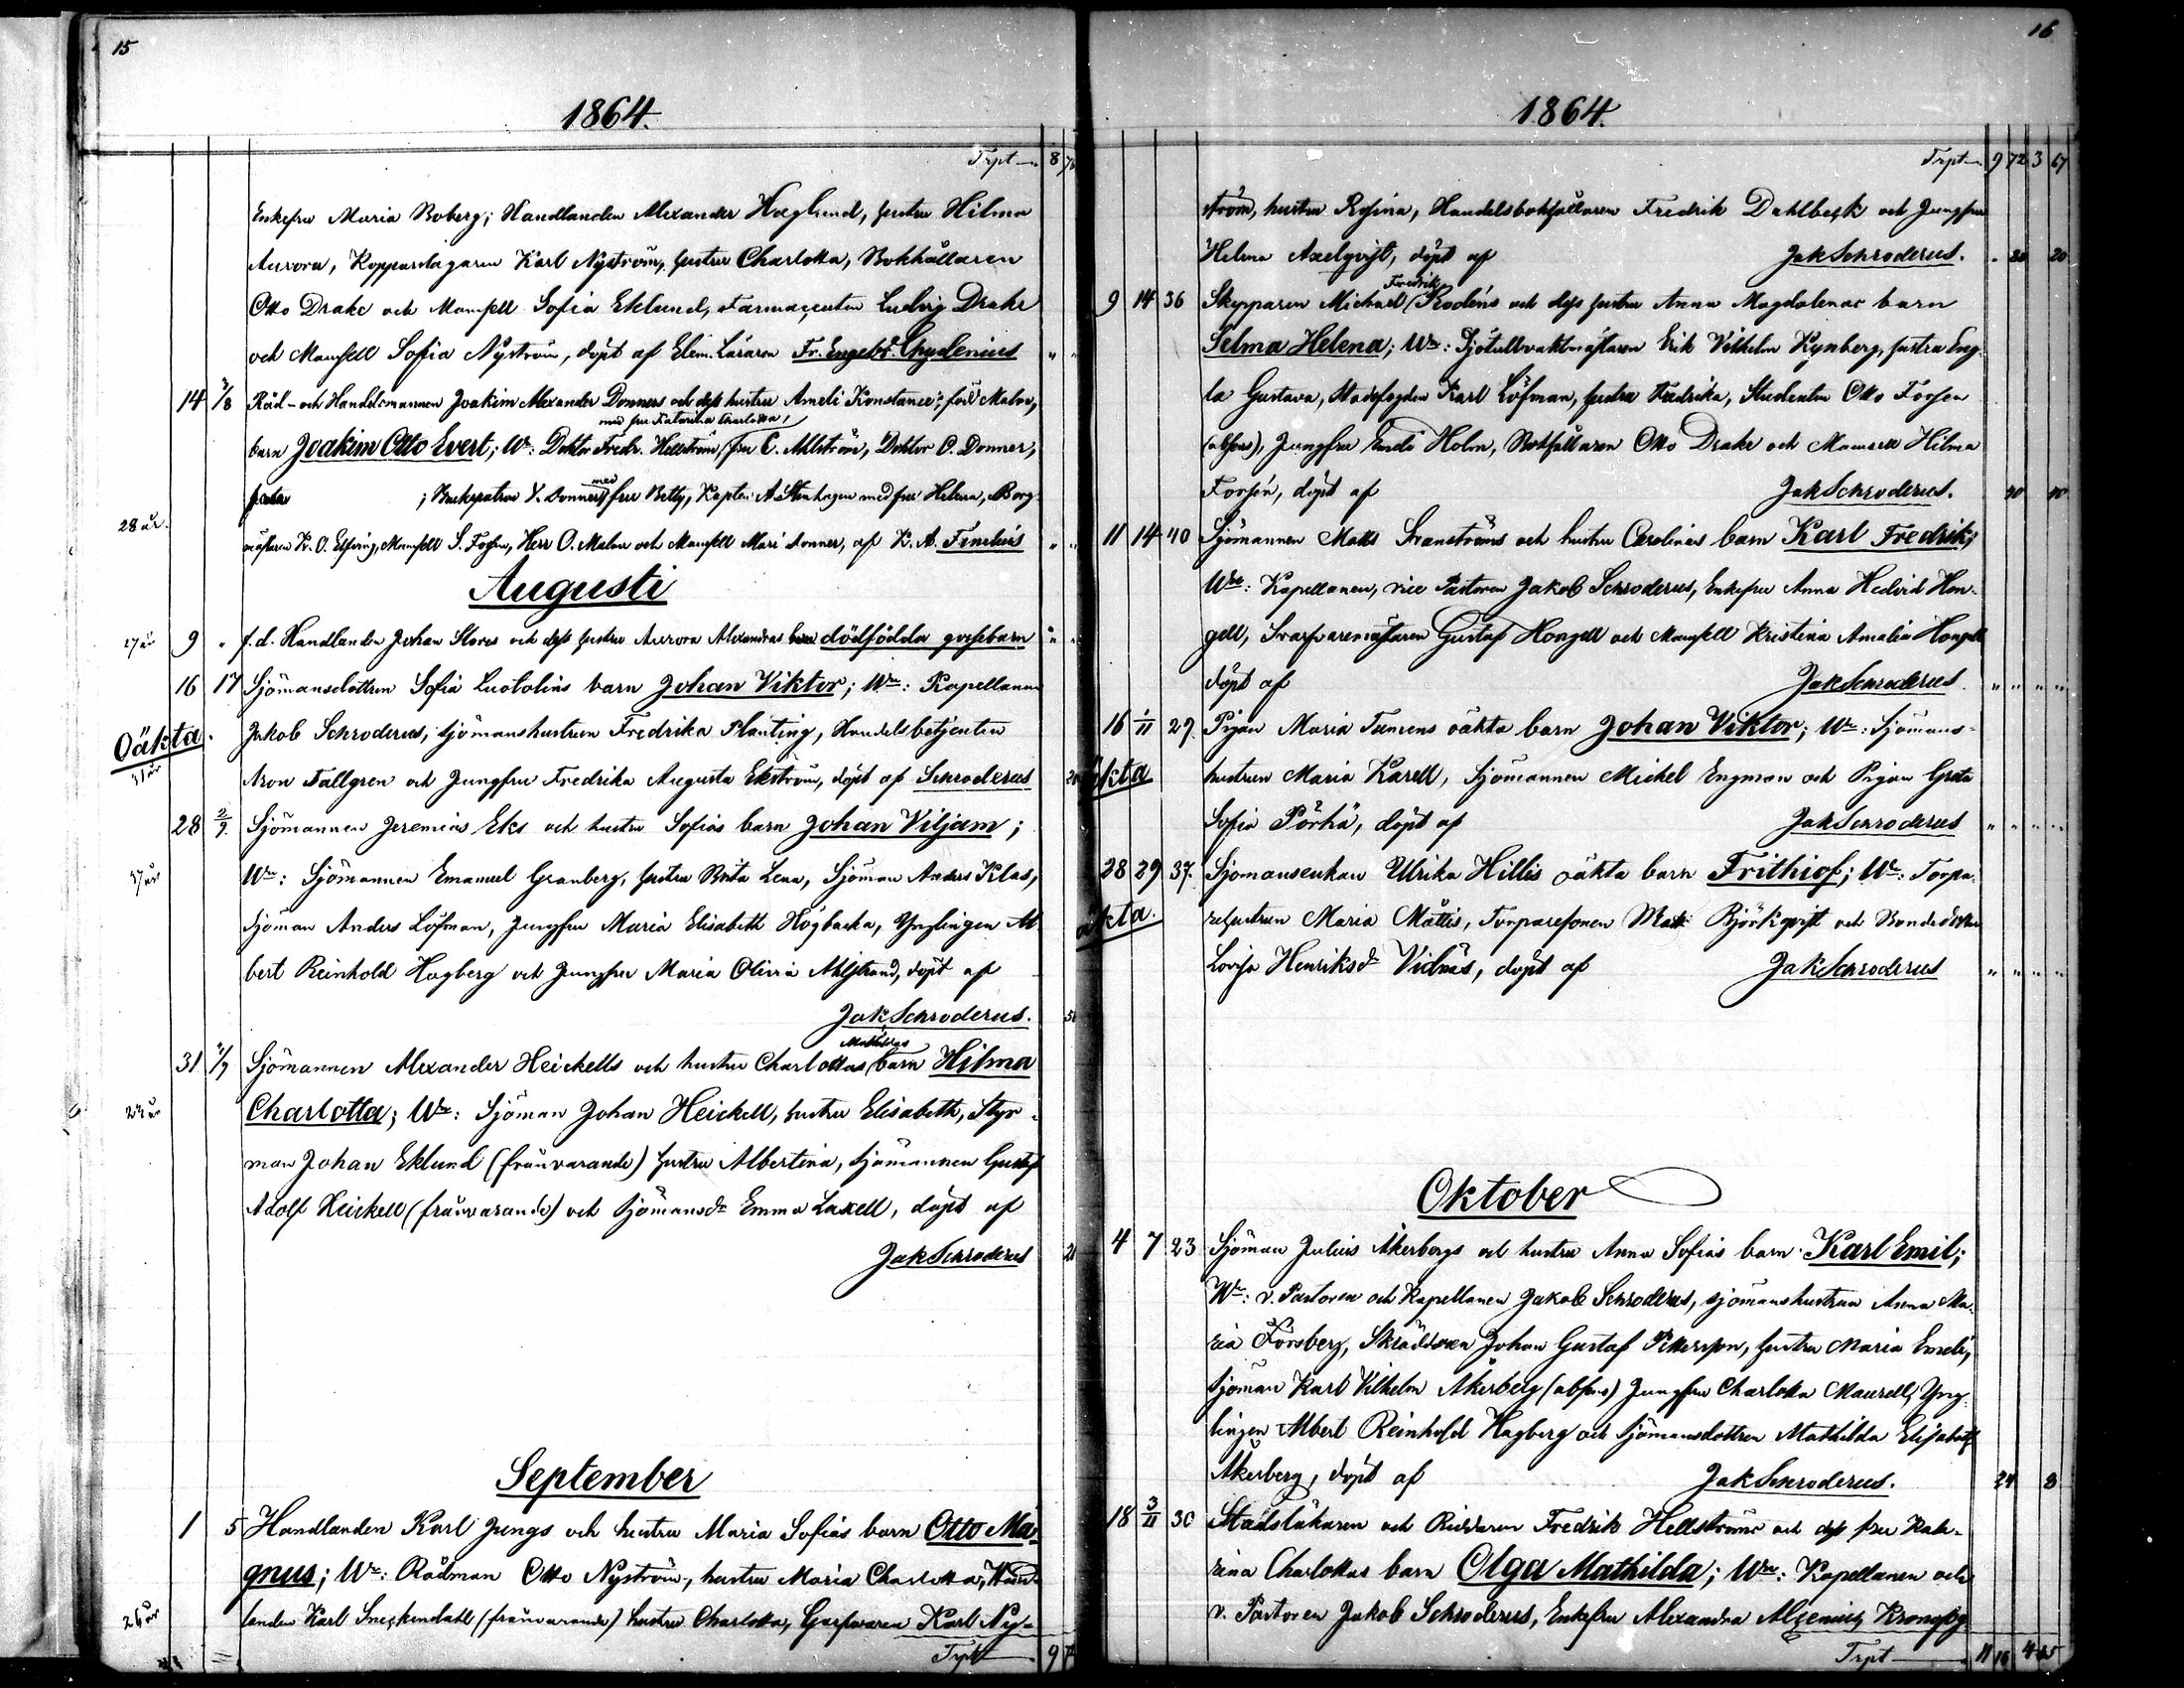 15
1864.
Trpt 8 76
Enkefru Maria Boberg; Handlanden Alexander Höglund, hustru Hilma
Aurora, Kopparslagaren Karl Nyström, hustru Charlotta, Bokhållaren
Otto Drake och Mamsell Sofia Eklund, Farmaceuten Ludvig Drake
och Mamsell Sofia Nyström, döpt af Elem. Läraren Fr. Engelb. Chydenius
14 3/8 Råd- och Handelsmannen Joakim Alexander Donners och dess hustru Ameli Konstance, född Malm,
med fru Katarina Charlotta,
barn Joakim Otto Evert; Wn: Doktor Fredr. Hellström, fru C. Ahlström, Doktor O. Donner,
; Brukspatron Donner med fru Betty, Kapten A Stenhagen med fru Helena, Borg-
28 år.
mästaren K. O. Elfving, Mamsell S. Forsén, Herr O. Malm och Mamsell Mari Donner, af K. A. Fenelius
Augusti
27 år 9 " f.d. Handlanden Johan Stores och dess hustru Aurora Alexandras dödfödda gossebarn
16 17 Sjömansdottren Sofia Luotolins barn Johan Viktor; Wn: Kapellanen
Oäkta. Jakob Schroderus, sjömanshustrun Fredrika Planting, Handelsbetjenten
31 år Aron Tallgren och Jungfru Fredrika Augusta Ekström, döpt af Schroderus 20
28 2/9 Sjömannen Jeremias Eks och hustru Sofias barn Johan Viljam;
37 år Wn: Sjömannen Emanuel Granberg, hustru Brita Lena, Sjöman Anders Klas,
Sjöman Anders Löfman, Jungfru Maria Elisabeth Högbacka, Ynglingen Al
bert Reinhold Hagberg och Jungfru Maria Olivia Ahlstrand, döpt af
Jak Schroderus.
Mathildas
31 4/9 Sjömannen Alexander Heickells och hustru Charlottas barn Hilma
23 år Charlotta; Wn: Sjöman Johan Heickell, hustru Elisabeth, Styr-
man Johan Eklund (frånvarande) hustru Albertina, sjömannen Gustaf
Adolf Heickell (frånvarande) och sjömansd. Emma Laxell, döpt af
Jak Schroderus
September
1 5 Handlanden Karl Jungs och hustru Maria Sofias barn Otto Ma-
gnus; Wn: Rådman Otto Nyström, hustru Maria Charlotta, Hand-
26 år landen Karl Sneckendahl (frånvarande) hustru Charlotta, Garfvaren Karl Ny-
Trpt 9
16
1864.
Trpt 9 72 3 67
ström, hustru Rosina, Handelsbokhållaren Fredrik Dahlbeck och Jungfru
Helena Axelqvist, döpt af Jak Schroderus. 20 20
Fredrik
9 14 36 Skepparen Michael Rodéns och dess hustru Anna Magdalenas barn
Selma Helena; Wn: Sjötullvaktmästaren Erik Vilhelm Rynberg, hustru Eng-
la Gustava, Stadsfogden Karl Löfman, hustru Fredrika, Studenten Otto Forsén
(absens), Jungfru Emili Holm, Bokhållaren Otto Drake och Mamsell Hilma
Forsén, döpt af Jak Schroderus. 40 40
11 14 40 Sjömannen Matts Svanströms och hustru Carolinas barn Karl Fredrik;
Wn: Kapellanen, vice Pastoren Jakob Schroderus, Enkefru Anna Hedvid Hon-
gell, Svarfvaremästaren Gustaf Hongell och Mamsell Kristina Amalia Hongell
döpt af Jak Schroderus
16 1/11 29. Pigan Maria Tamrens oäkta barn Johan Viktor; Wn: Sjömans-
äkta hustrun Maria Karell, Sjömannen Michel Engman och Pigan Greta
Sofia Pörhä, döpt af Jak Schroderus
28 29 37. Sjömansenkan Ulrika Hillis oäkta barn Frithiof; Wn: Torpa-
äkta. rehustrun Maria Mattis, Torparesonen Matts Björkqvist och Bondedottren
Lovisa Henriksd. Vidnäs, döpt af Jak Schroderus
Oktober
4 7 23 Sjöman Julius Åkerbergs och hustru Anna Sofias barn Karl Emil;
Wn: v. Pastoren och Kapellanen Jakob Schroderus, sjömanshustrun Anna Ma-
ria Forsberg, Skräddaren Johan Gustaf Pettersson, hustru Maria Emeli,
Sjöman Karl Vilhelm Åkerberg (absens) Jungfru Charlotta Maurell, Yng-
lingen Albert Reinhold Hagberg och Sjömansdottren Mathilda Elisabeth
Åkerberg, döpt af Jak Schroderus. 24 8
18 3/11 30 Stadsläkaren och Riddaren Fredrik Hellströms och dess fru Kata-
rina Charlottas barn Olga Mathilda; Wn: Kapellanen och
v. Pastoren Jakob Schroderus, Enkefru Alexandra Alcenius, Kronofog-
Trpt 11 16 4 35